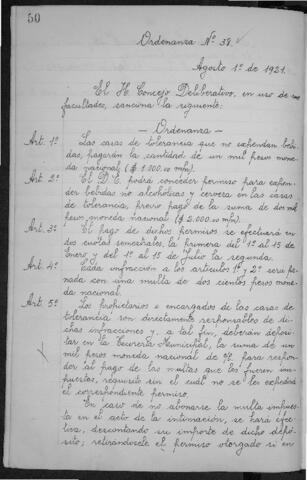 50
Ordenanza Nº 38.
Agosto 1º de 1921.
El H. Concejo Deliberativo, en uso de sus
facultades, sanciona la siguiente:
— Ordenanza —
Art. 1º Las casas de tolerancia que no expendan bebi-
das, pagarán la cantidad de un mil pesos mone-
da nacional ($ 1.000.oo m/n).
Art. 2º El D. E. podrá conceder permiso para expen-
der bebidas no alcohólicas y cerveza en las casas
de tolerancia, previo pago de la suma de dos mil
pesos moneda nacional ($ 2.000.oo m/n).
Art. 3º El pago de dichos permisos se efectuará en
dos cuotas semestrales, la primera del 1º al 15 de
Enero y del 1º al 15 de Julio la segunda.
Art. 4º Cada infracción a los artículos 1º y 2º será pe-
nada con una multa de dos cientos pesos mone-
da nacional.
Art. 5º Los propietarios o encargados de las casas de
tolerancia son directamente responsables de di-
chas infracciones y, a tal fin, deberán deposi-
tar en la Tesorería Municipal, la suma de un
mil pesos moneda nacional de c/l para respon-
der al pago de las multas que les fueren im-
puestas, requisito sin el cual no se les expedirá
el correspondiente permiso.
En caso de no abonarse la multa impues-
ta en el acto de la intimación, se hará efec-
tiva, descontando su importe de dicho depó-
sito; retirándosele el permiso otorgado si en